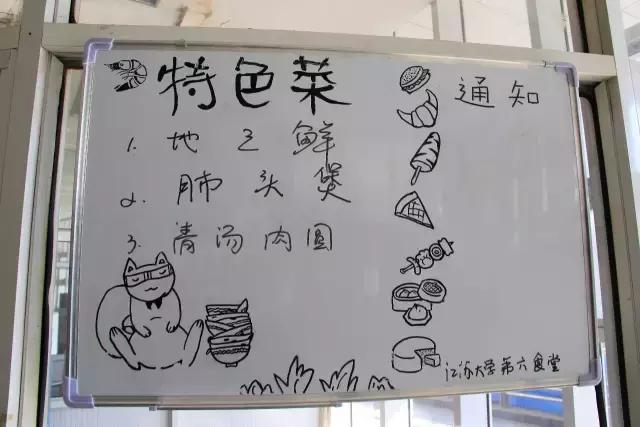 特色菜
1. 地三鲜
2. 肺头煲
3. 青汤肉圆
通知
江苏大学第六食堂